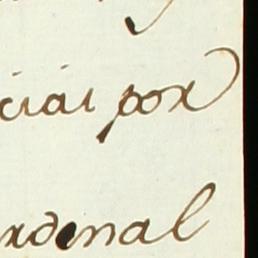 ciar por
rdenal